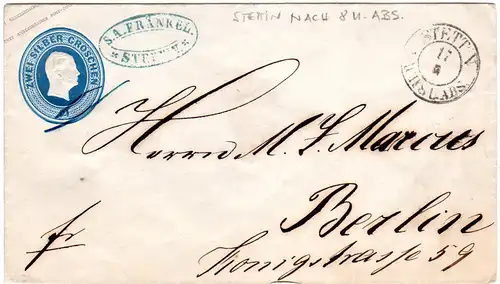 ZWEI SILBER GROSCHEN
S.A. FRÄNKEL.
* STETTIN. *
STETTIN NACH 8 U. ABS.
STETTIN
17
NACH 8 U. ABS.
Herrn M. S. Marcus
Berlin
fr
Königstrasse 59